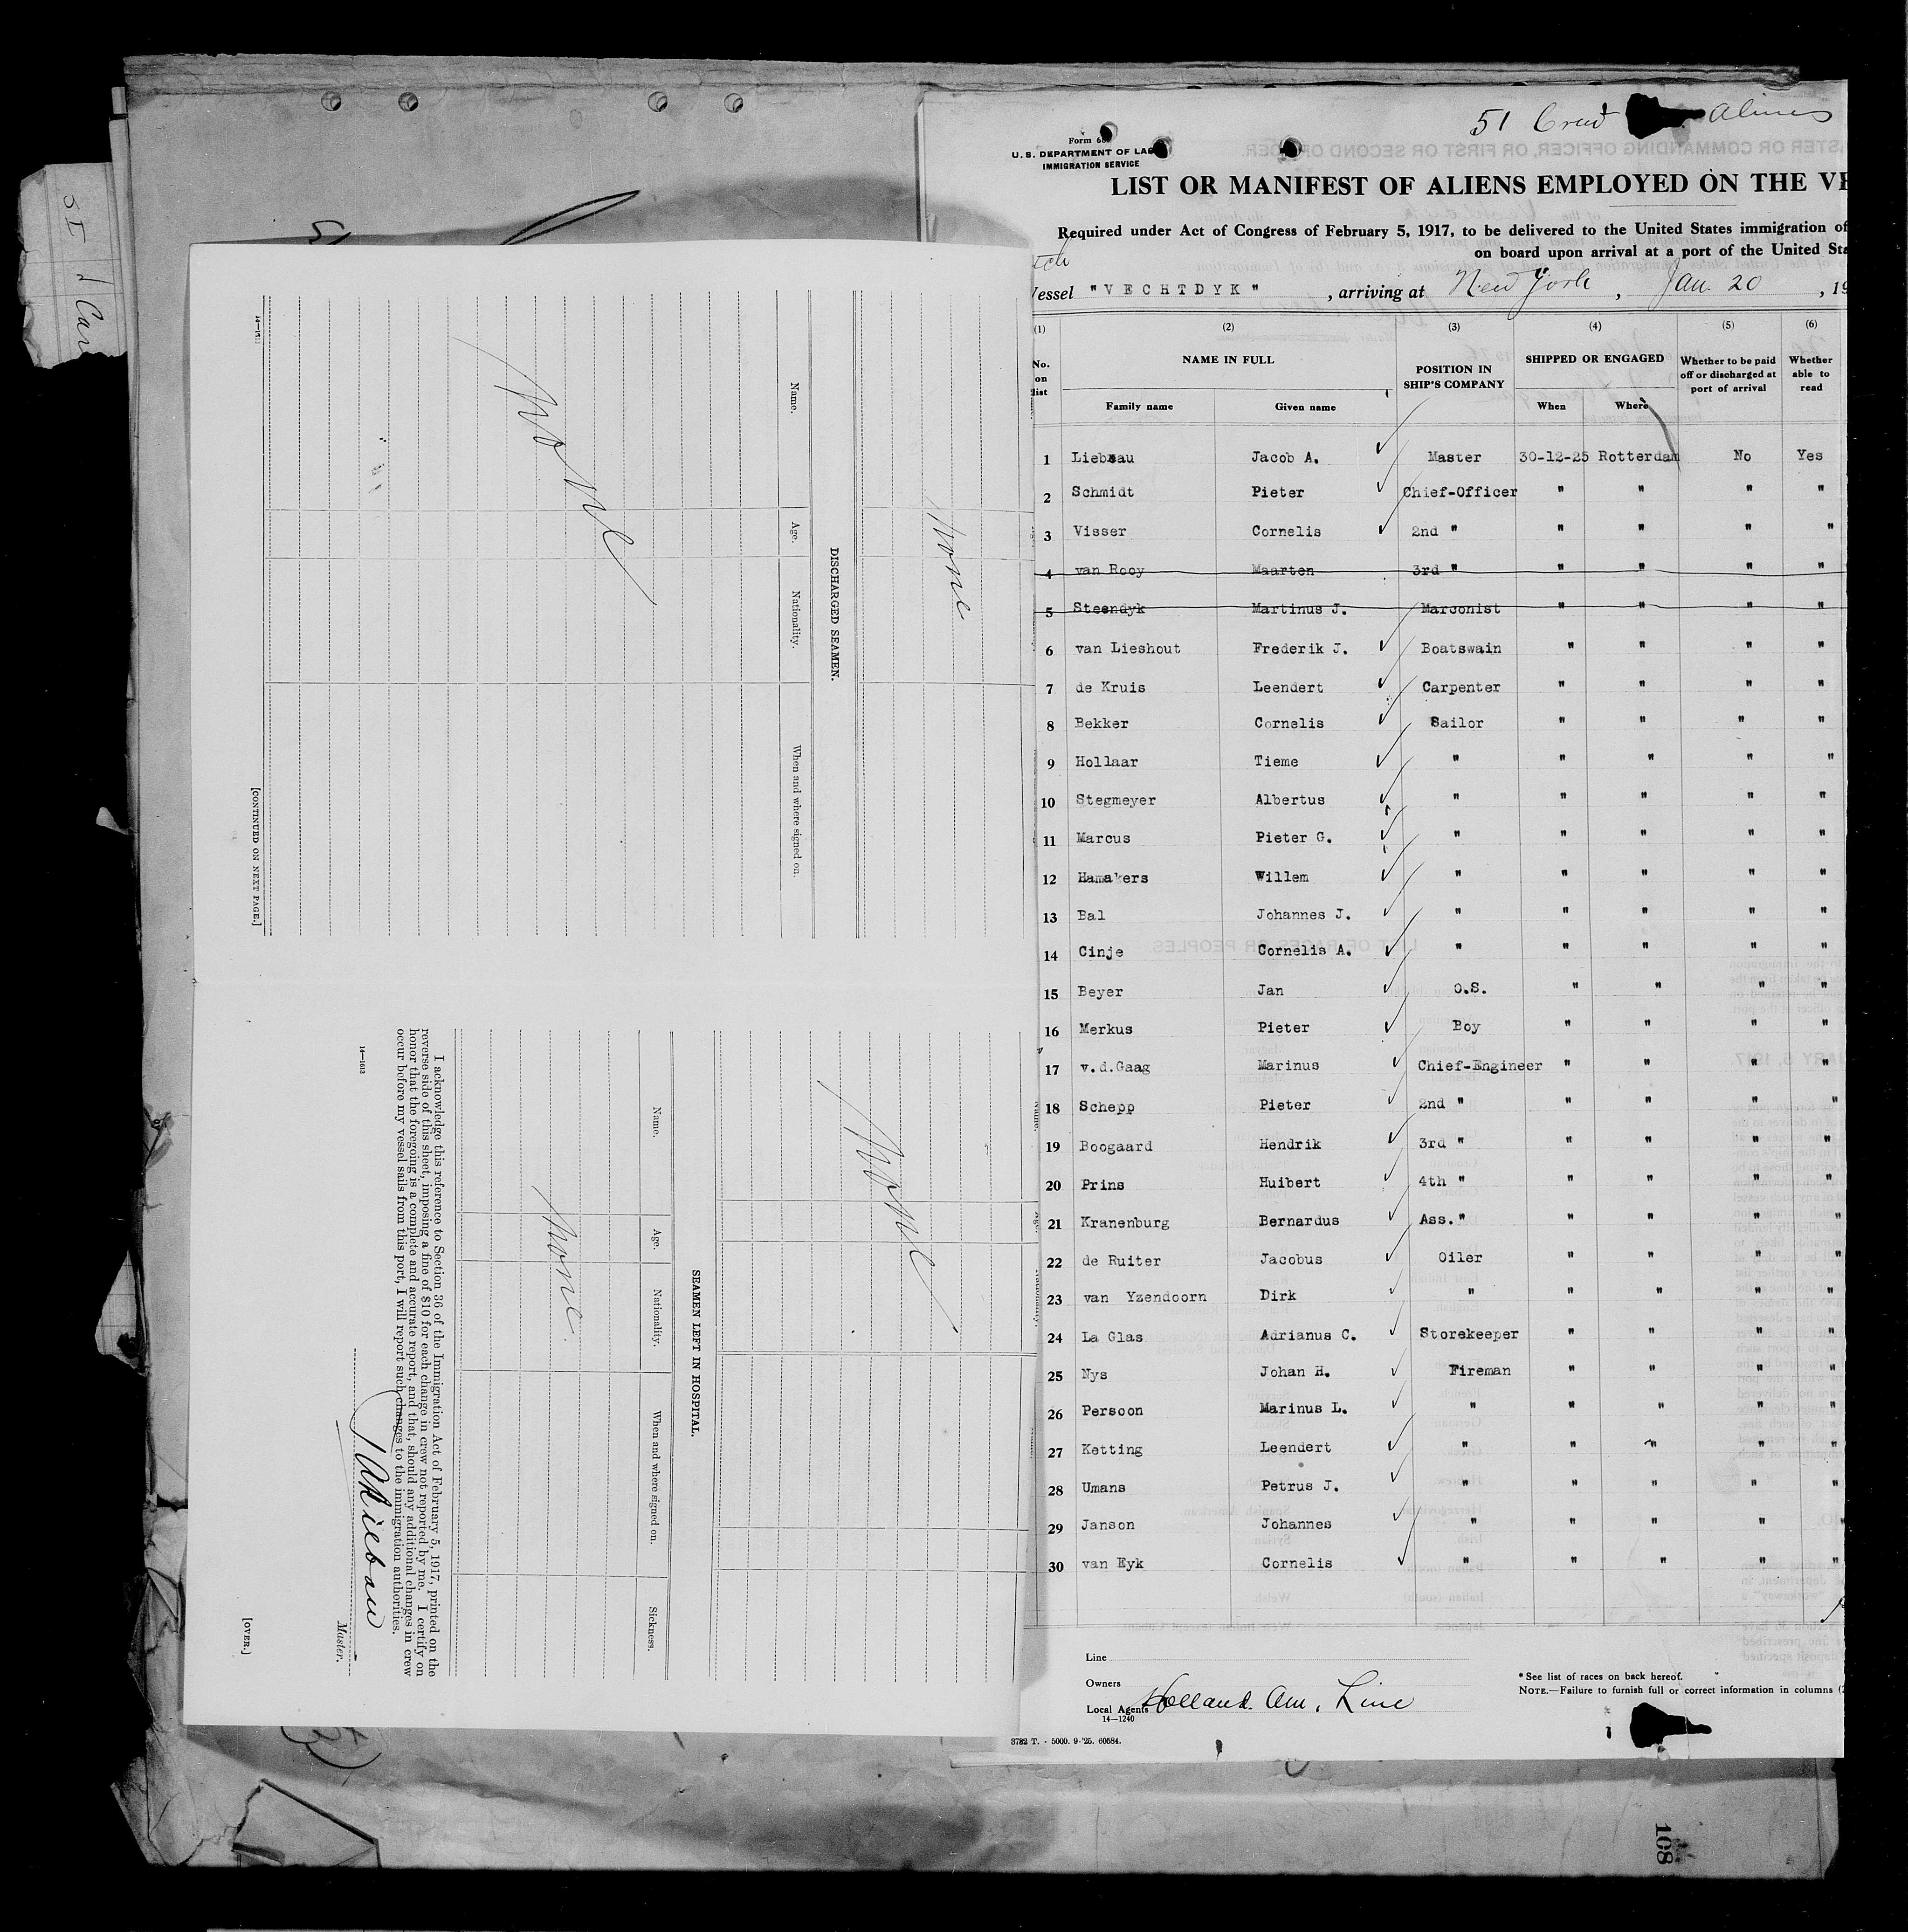 51 Crew Aliens
Form 68
U. S. DEPARTMENT OF LAB
IMMIGRATION SERVICE
LIST OR MANIFEST OF ALIENS EMPLOYED ON THE VE
Required under Act of Congress of February 5, 1917, to be delivered to the United States immigration of
on board upon arrival at a port of the United Sta
Vessel "VECHTDYK", arriving at New York, Jan. 20, 19
(1) (2) (3) (4) (5) (6)
No. on list NAME IN FULL POSITION IN SHIP'S COMPANY SHIPPED OR ENGAGED Whether to be paid off or discharged at port of arrival Whether able to read
Family name Given name When Where
1 Liebeau Jacob A. Master 30-12-25 Rotterdam No Yes
2 Schmidt Pieter Chief-Officer " " " "
3 Visser Cornelis 2nd " " " " "
4 van Rooy Maarten 3rd " " " " "
5 Steendyk Martinus J. Marconist " " " "
6 van Lieshout Frederik J. Boatswain " " " "
7 de Kruis Leendert Carpenter " " " "
8 Bekker Cornelis Sailor " " " "
9 Hollaar Tieme " " " " "
10 Stegmeyer Albertus " " " " "
11 Marcus Pieter G. " " " " "
12 Hamakers Willem " " " " "
13 Bal Johannes J. " " " " "
14 Cinje Cornelis A. " " " " "
15 Beyer Jan O.S. " " " "
16 Merkus Pieter Boy " " " "
17 v.d.Gaag Marinus Chief-Engineer " " " "
18 Schepp Pieter 2nd " " " " "
19 Boogaard Hendrik 3rd " " " " "
20 Prins Huibert 4th " " " " "
21 Kranenburg Bernardus Ass." " " " "
22 de Ruiter Jacobus Oiler " " " "
23 van Yzendoorn Dirk " " " " "
24 La Glas Adrianus C. Storekeeper " " " "
25 Nys Johan H. Fireman " " " "
26 Persoon Marinus L. " " " " "
27 Ketting Leendert " " " " "
28 Umans Petrus J. " " " " "
29 Janson Johannes " " " " "
30 van Eyk Cornelis " " " " "
Line
Owners
Local Agents Holland. Am. Line
14—1240
* See list of races on back hereof.
NOTE.—Failure to furnish full or correct information in columns (
3782 T. - 5000. 9-'25. 60584.
108
None
DISCHARGED SEAMEN.
Name. Age. Nationality. When and where signed on.
None
[CONTINUED ON NEXT PAGE.]
None
SEAMEN LEFT IN HOSPITAL.
Name. Age. Nationality. When and where signed on. Sickness.
None.
I acknowledge this reference to Section 36 of the Immigration Act of February 5, 1917, printed on the
reverse side of this sheet, imposing a fine of $10 for each change in crew not reported by me. I certify on
honor that the foregoing is a complete and accurate report, and that, should any additional changes in crew
occur before my vessel sails from this port, I will report such changes to the immigration authorities.
JALiebau
Master.
14—1613
[OVER.]